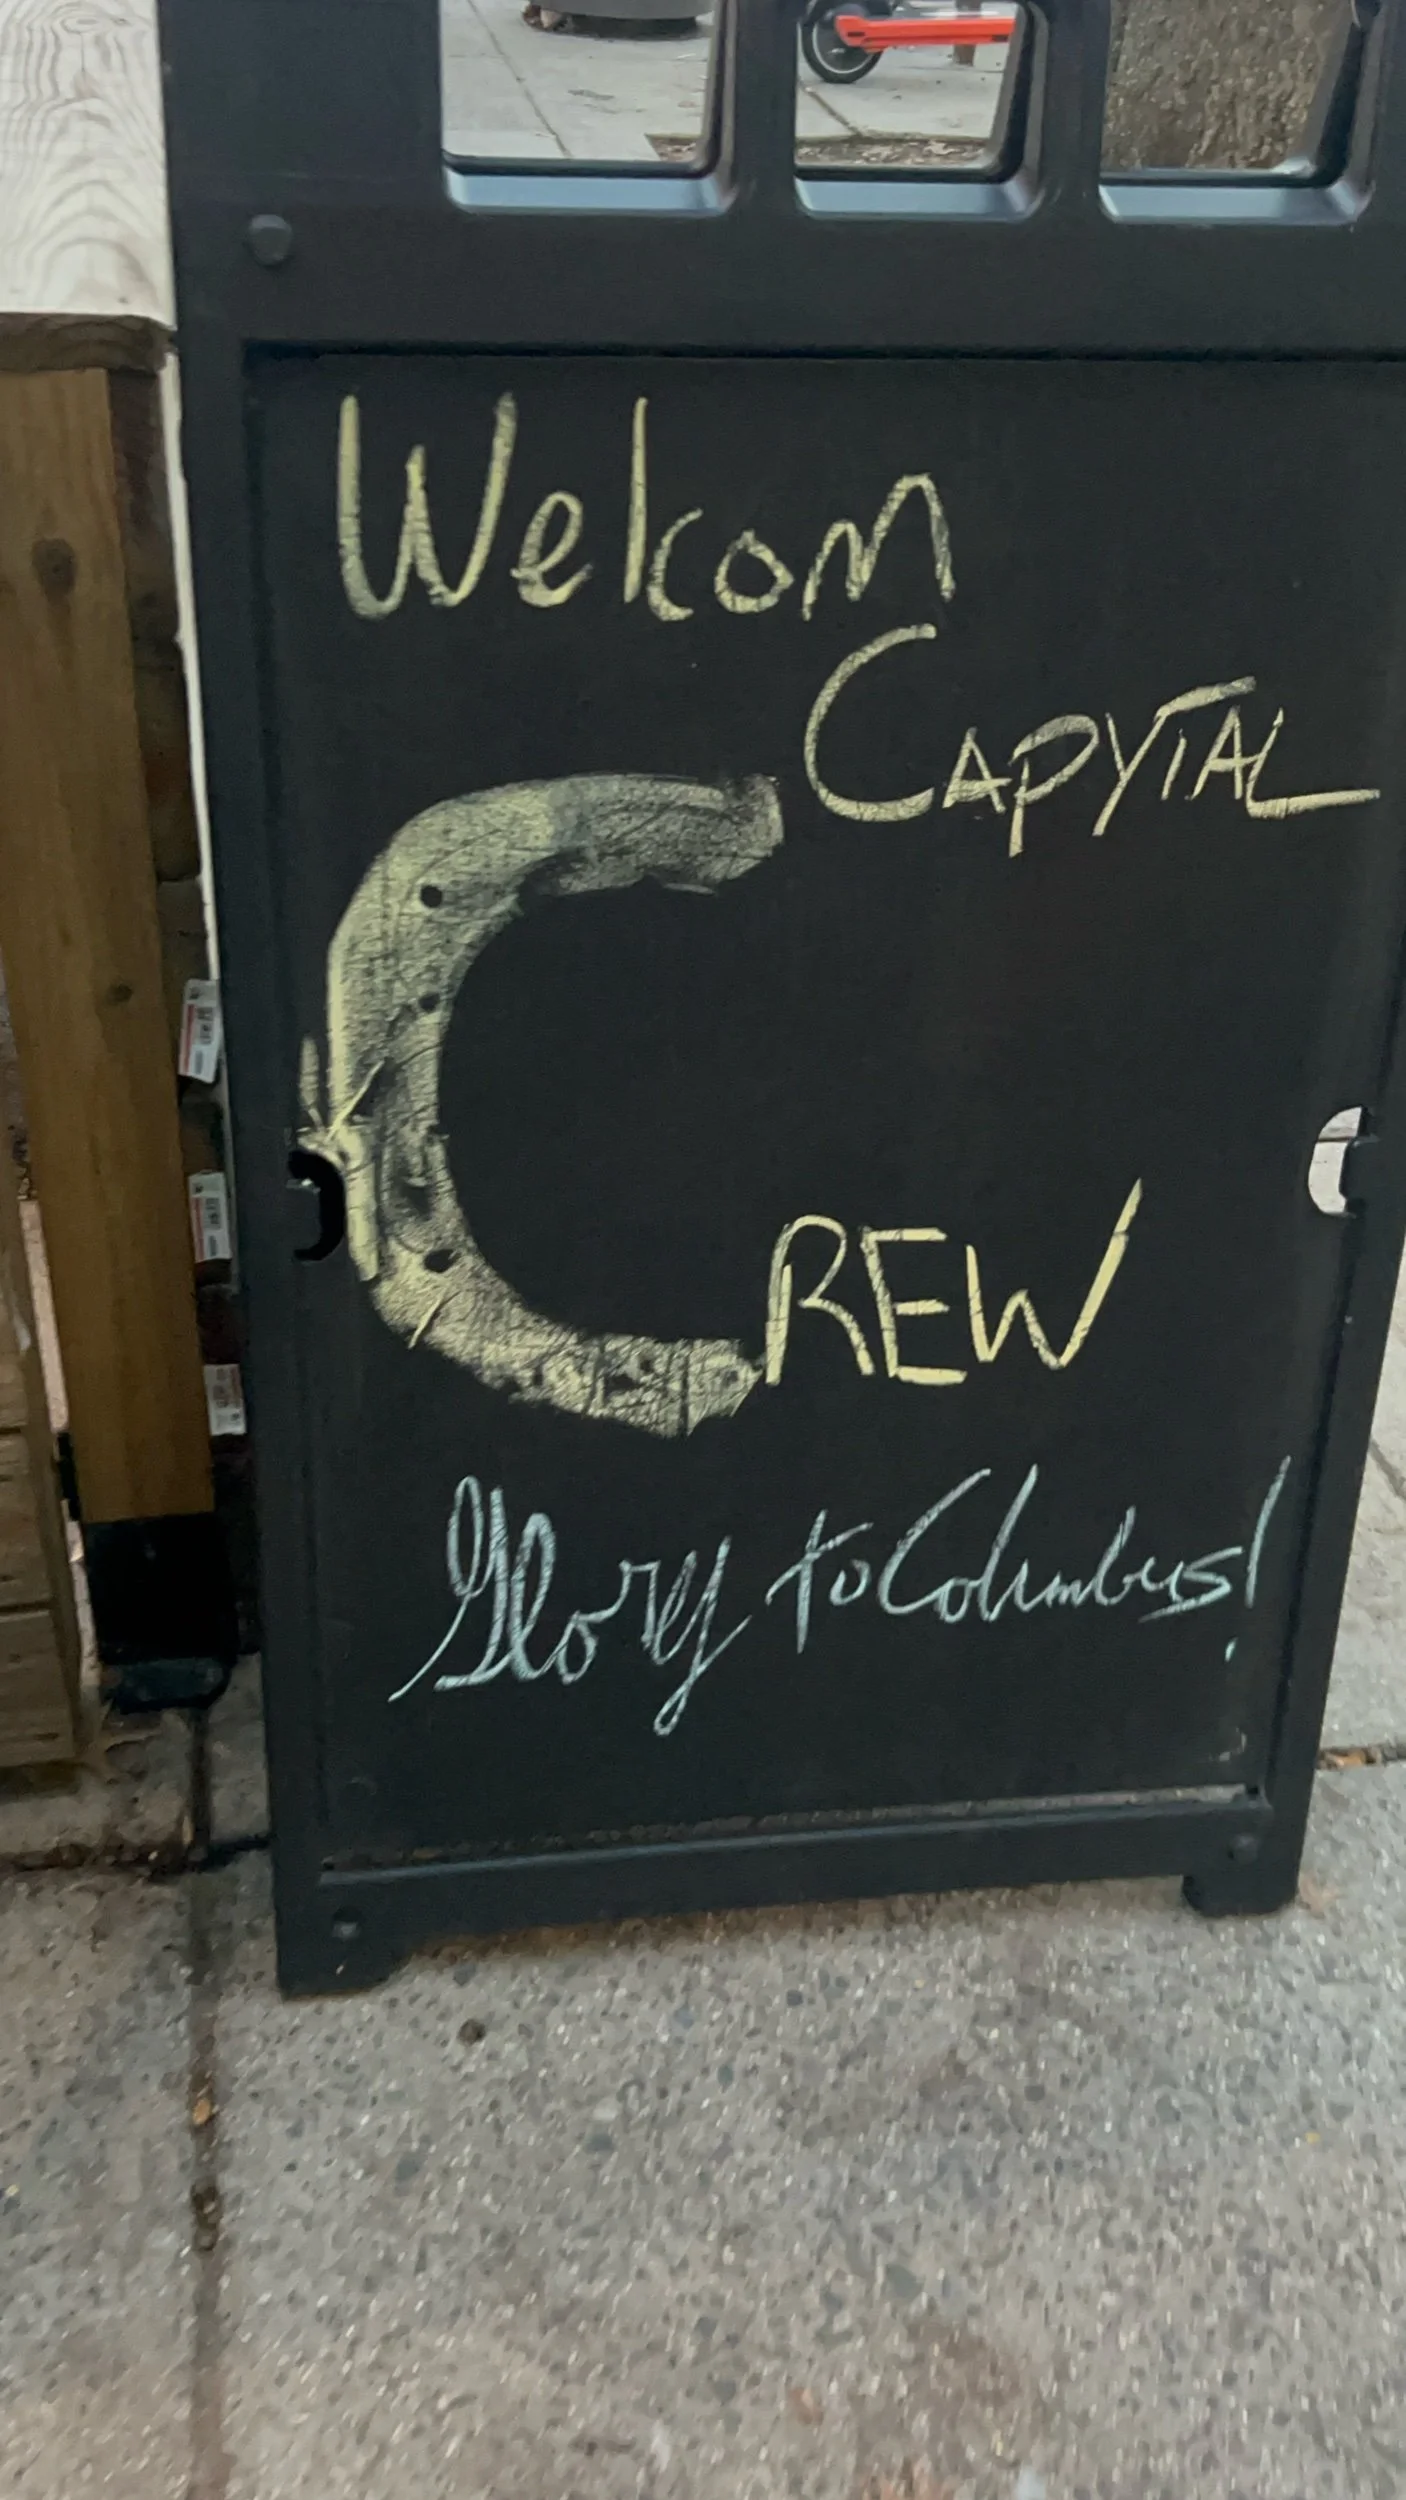 Welcom
CAPYTAL
CREW
Glory to Columbus!